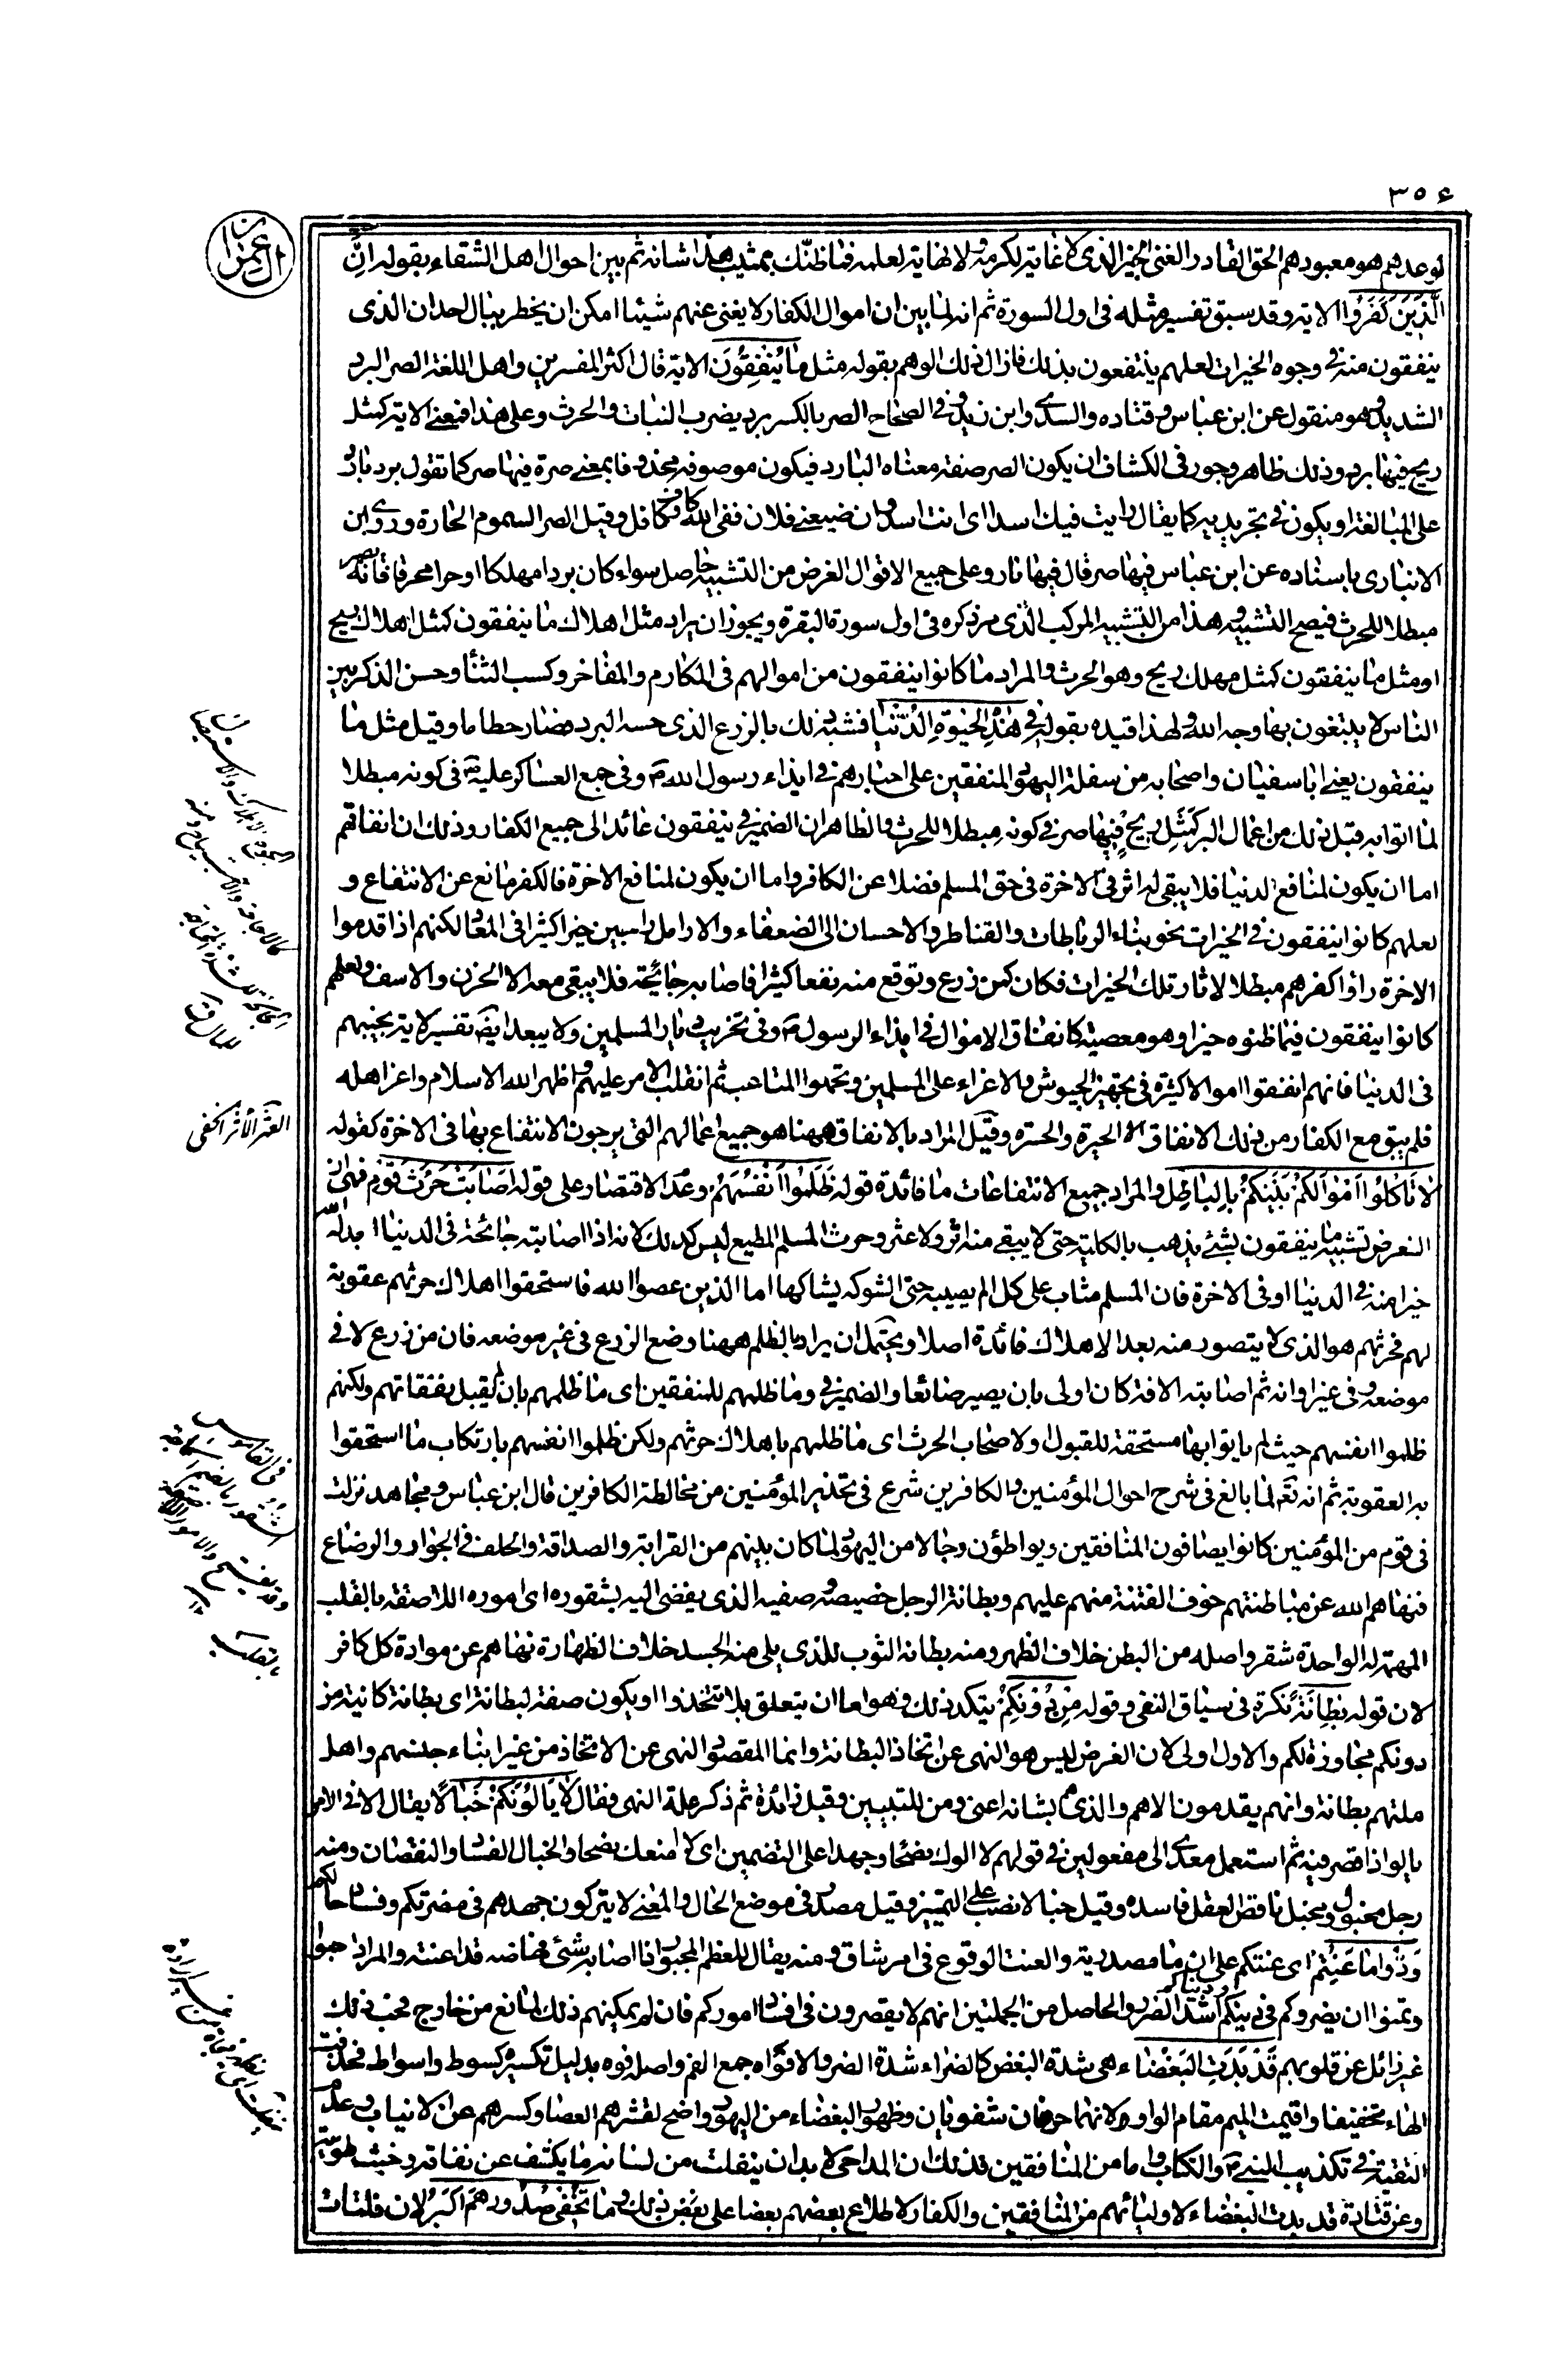 ٣٥٤
ال عمران
لوعدهم هو معبودهم الحق القادر الغنى الخبير الذى لا غاية لكرمه ولا نهاية لعلمه فما ظنك بمثيب هذا شانه ثم بين احوال اهل الشقاء بقوله ان
الَّذِينَ كَفَرُوا الاية وقد سبق تفسير مثله فى اول السورة ثم انه لما بين ان اموال الكفار لا يغنى عنهم شيئا امكن ان يخطر ببال احد ان الذى
ينفقون منه فى وجوه الخيرات لعلهم ينتفعون بذلك فازال ذلك الوهم بقوله مثل مَا يُنْفِقُونَ الاية قال اكثر المفسرين واهل اللغة الصر البرد
الشديد وهو منقول عن ابن عباس وقتاده والسدى وابن زيد وفى الصحاح الصر بالكسر برد يضرب النبات والحرث وعلى هذا فمعنى الاية كمثل
ريح فيها برد وذلك ظاهر وجوز فى الكشاف ان يكون الصر صفة معناه البارد فيكون موصوفه محذوفا بمعنى صرة فيها صر كما تقول برد بارد
على المبالغة او يكون فى تجريدية كما يقال رايت فيك اسدا اى انت اسد وان ضيعنى فلان ففى الله كاف وكافل وقيل الصر السموم الحارة وروى ابن
الانبارى باسناده عن ابن عباس فيها صر قال فيها نار وعلى جميع الاقوال الغرض من التشبيه حاصل سواء كان بردا مهلكا او حرا محرقا فانه يصير
مبطلا للحرث فيصح التشبيه وهذا من التشبيه المركب الذى مر ذكره فى اول سورة البقرة ويجوز ان يراد مثل اهلاك ما ينفقون كمثل اهلاك ريح
او مثل ما ينفقون كمثل مهلك ريح وهو الحرث والمراد ما كانوا ينفقون من اموالهم فى المكارم والمفاخر وكسب الثناء وحسن الذكر بين
الناس لا يبتغون بها وجه الله ولهذا قيده بقوله فِى هٰذِهِ الْحَيٰوةِ الدُّنْيَا فشبه ذلك بالزرع الذى حسه البرد فصار حطاما وقيل مثل ما
ينفقون يعنى ابا سفيان واصحابه من سفلة اليهود المنفقين على احبارهم فى ايذاء رسول الله ص وفى جمع العساكر عليه فى كونه مبطلا
لما اتوا به قبل ذلك من اعمال البر كَمَثَلِ رِيحٍ فِيهَا صر فى كونه مبطلا للحرث والظاهر ان الضمير فى ينفقون عائد الى جميع الكفار وذلك ان انفاقهم
اما ان يكون لمنافع الدنيا فلا يبقى له اثر فى الاخرة فى حق المسلم فضلا عن الكافر واما ان يكون لمنافع الاخرة فالكفر مانع عن الانتفاع و
لعلهم كانوا ينفقون فى الخيرات نحو بناء الرباطات والقناطر والاحسان الى الضعفاء والارامل راجين خيرا كثيرا فى المعاد لكنهم اذا قدموا
الاخرة راوا كفرهم مبطلا لاثار تلك الخيرات فكان كمن زرع وتوقع منه نفعا كثيرا فاصابه جائحة فلا يبقى معه الا الحزن والاسف ولعلهم
كانوا ينفقون فيما ظنوه خيرا وهو معصية كانفاق الاموال فى ايذاء الرسول ص وفى تخريب ديار المسلمين ولا يبعد ايضا تفسير الاية بخيبتهم
فى الدنيا فانهم انفقوا اموالا كثيرة فى تجهيز الجيوش والاغراء على المسلمين وتحملوا المتاعب ثم انقلب الامر عليهم واظهر الله الاسلام واعز اهله
فلم يبق مع الكفار من ذلك الانفاق الا الحيرة والحسرة وقيل المراد بالانفاق ههنا هو جميع اعمالهم التى يرجون الانتفاع بها فى الاخرة كقوله
لَا تَأْكُلُوا اَمْوَالَكُمْ بَيْنَكُمْ بِالْبَاطِلِ والمراد جميع الانتفاعات ما فائدة قوله ظَلَمُوا اَنْفُسَهُمْ وعدم الاقتصار على قوله اَصَابَتْ حَرْثَ قَوْمٍ فهى ان
الغرض تشبيه ما ينفقون بشئ يذهب بالكلية حتى لا يبقى منه اثر ولا عثر وحرث المسلم المطيع ليس كذلك لانه اذا اصابته جائحة فى الدنيا ابدله الله
خيرا منه فى الدنيا او فى الاخرة فان المسلم مثاب على كل الم يصيبه حتى الشوكة يشاكها اما الذين عصوا الله فاستحقوا اهلاك حرثهم عقوبة
لهم فحرثهم هو الذى لا يتصور منه بعد الاهلاك فائدة اصلا ويحتمل ان يراد بالظلم ههنا وضع الزرع فى غير موضعه فان من زرع لا فى
موضعه وفى غير اوانه ثم اصابته الافة كان اولى بان يصير ضائعا والضمير فى وما ظلمهم للمنفقين اى ما ظلمهم بان لم يقبل نفقاتهم ولكنهم
ظلموا انفسهم حيث لم ياتوا بها مستحقة للقبول او لاصحاب الحرث اى ما ظلمهم باهلاك حرثهم ولكن ظلموا انفسهم بارتكاب ما استحقوا
به العقوبة ثم انه تعالى لما بالغ فى شرح احوال المؤمنين والكافرين شرع فى تحذير المؤمنين من مخالطة الكافرين قال ابن عباس ومجاهد نزلت
فى قوم من المؤمنين كانوا يصافون المنافقين ويواطؤن رجالا من اليهود لما كان بينهم من القرابة والصداقة والحلف فى الجوار والرضاع
فنهاهم الله عن مباطنتهم خوف الفتنة منهم عليهم وبطانة الرجل خصيصه وصفيه الذى يفضى اليه بشقوره اى اموره اللاصقة بالقلب
المهمة له الواحدة شقر واصله من البطن خلاف الظهر ومنه بطانة الثوب للذى يلى منه الجسد خلاف الظهارة نهاهم عن موادة كل كافر
لان قوله بِطَانَةً نكرة فى سياق النفى وقوله مِنْ دُونِكُمْ يتكد ذلك وهو اما ان يتعلق بلا تتخذوا او يكون صفة لبطانة اى بطانة كائنة من
دونكم مجاوزة لكم والاول اولى لان الغرض ليس هو النهى عن اتخاذ البطانة وانما المقصود النهى عن الاتخاذ من غير ابناء جلسهم واهل
ملتهم بطانة وانهم يقدمون الاهم والذى هم بشانه اعنى ومن للتبيين وقيل زائدة ثم ذكر علة النهى فقال لَا يَأْلُونَكُمْ خَبَالًا يقال الا فى الامر
يالو اذا قصر فيه ثم استعمل معدى الى مفعولين فى قولهم لا الوك نصحا وجهدا على التضمين اى لا امنعك نصحا والخبال الفساد والنقصان ومنه
رجل مخبول ومخبل ناقص العقل فاسده وقيل خبالا نصب على التمييز وقيل مصدر فى موضع الحال والمعنى لا يتركون جهدهم فى مضرتكم وفساد حالكم
وَدُّوا مَا عَنِتُّمْ اى عنتكم على ان ما مصدرية والعنت الوقوع فى امر شاق ومنه يقال للعظم المجبور اذا اصابه شئ فهاضه قد اعنته والمراد احبوا
وتمنوا ان يضروكم فى دينكم ودنياكم اشد الضرر والحاصل من الجملتين انهم لا يقصرون فى افساد اموركم فان لم يمكنهم ذلك لمانع من خارج فحب ذلك
غير زائل عن قلوبهم قَدْ بَدَتِ الْبَغْضَاء هى شدة البغض كالضراء شدة الضر والافواه جمع الفم واصله فوه بدليل تكسيره كسوط واسواط فحذفت
الهاء تخفيفا واقيمت الميم مقام الواو لانهما حرفان شفويان وظهور البغضاء من اليهود واضح لقشرهم العصا وكسرهم عن الانياب وعدم
التقية فى تكذيب النبى ص والكتاب واما من المنافقين فذلك ان المداجى لا بد ان ينفلت من لسانه ما يكشف عن نفاقه وخبث طويته
وعن قتادة قد بدت البغضاء لاوليائهم من المنافقين والكفار لاطلاع بعضهم بعضا على بعض ذلك وَمَا تُخْفِى صُدُورُهُمْ اَكْبَرُ لان فلتات
العثر الاثر الخفى